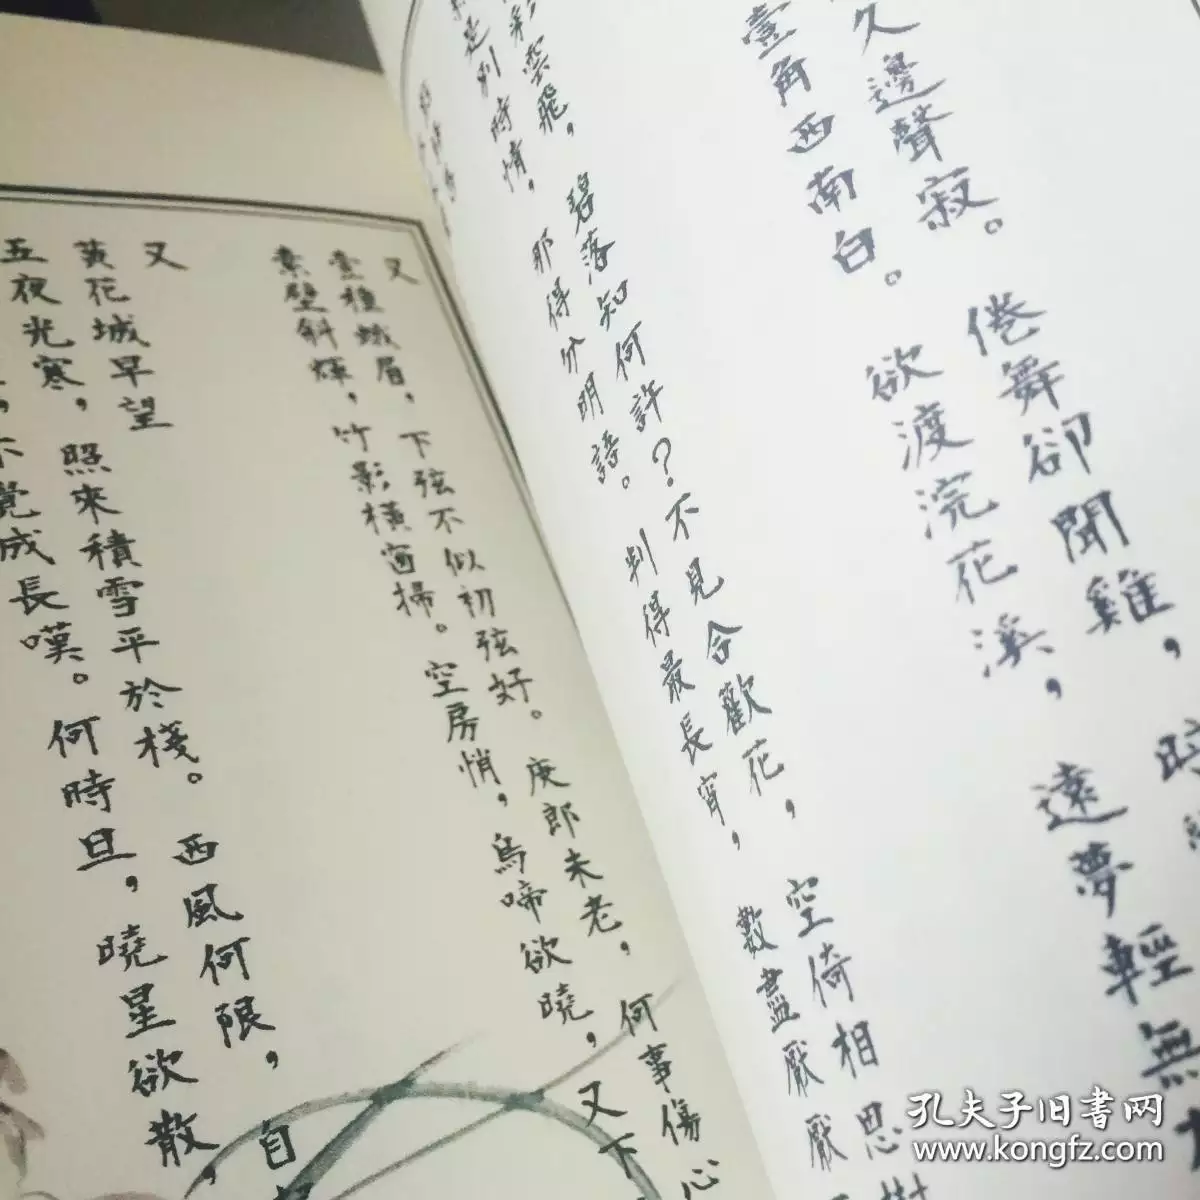 久邊聲寂。倦舞卻聞雞，
壹角西南白。欲渡浣花溪，遠夢輕無
彩雲飛，碧落知何許？不見合歡花，空倚相思樹
是別時情，那得分明語。判得最長宵，數盡厭厭
又
壹種蛾眉，下弦不似初弦好。庾郎未老，何事傷心
素壁斜輝，竹影橫窗掃。空房悄，烏啼欲曉，又下
又
黃花城早望
五夜光寒，照來積雪平於棧。西風何限，自
，不覺成長嘆。何時旦，曉星欲散，
孔夫子旧书网
www.kongfz.com